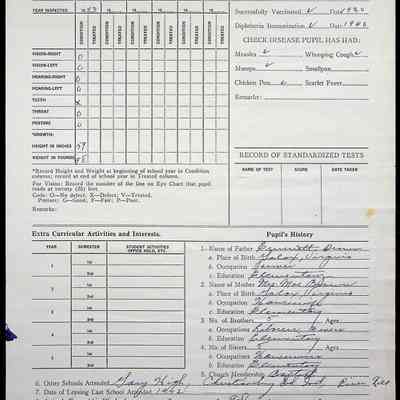 YEAR INSPECTED 19 53 19 19 19 19 19
CONDITION TREATED CONDITION TREATED CONDITION TREATED CONDITION TREATED CONDITION TREATED CONDITION TREATED
VISION-RIGHT 0
VISION-LEFT 0
HEARING-RIGHT 0
HEARING-LEFT 0
TEETH X
THROAT 0
POSTURE G
*GROWTH:
HEIGHT IN INCHES 59
WEIGHT IN POUNDS
*Record Height and Weight at beginning of school year in Condition
column; record at end of school year in Treated column.
For Vision: Record the number of the line on Eye Chart that pupil
reads at twenty (20) feet.
Code: O—No defect, X—Defect, V—Treated.
Posture: G—Good, F—Fair, P—Poor.
Remarks:
Successfully Vaccinated V Date
Diphtheria Immunization V Date 1940
CHECK DISEASE PUPIL HAS HAD:
Measles V Whooping Cough V
Mumps V Smallpox
Chicken Pox V Scarlet Fever
Remarks:
RECORD OF STANDARDIZED TESTS
NAME OF TEST SCORE DATE TAKEN
Extra Curricular Activities and Interests.
YEAR SEMESTER STUDENT ACTIVITIES OFFICE HELD, ETC.
1 1st
2nd
2 1st
2nd
3 1st
2nd
4 1st
2nd
5 1st
2nd
Pupil's History
1. Name of Father
a. Place of Birth Galax, Virginia
b. Occupation Farmer
c. Education Elementary
2. Name of Mother Mrs. Mae
a. Place of Birth Galax, Virginia
b. Occupation Housewife
c. Education Elementary
3. No. of Brothers 5 Ages
a. Occupations Laborers
b. Education Elementary
4. No. of Sisters Ages
a. Occupations Housewives
b. Education Elementary
5. Church Membership Baptist
6. Other Schools Attended Gary High, Christianburg Ind. Inst.
7. Date of Leaving Last School Attended 1952